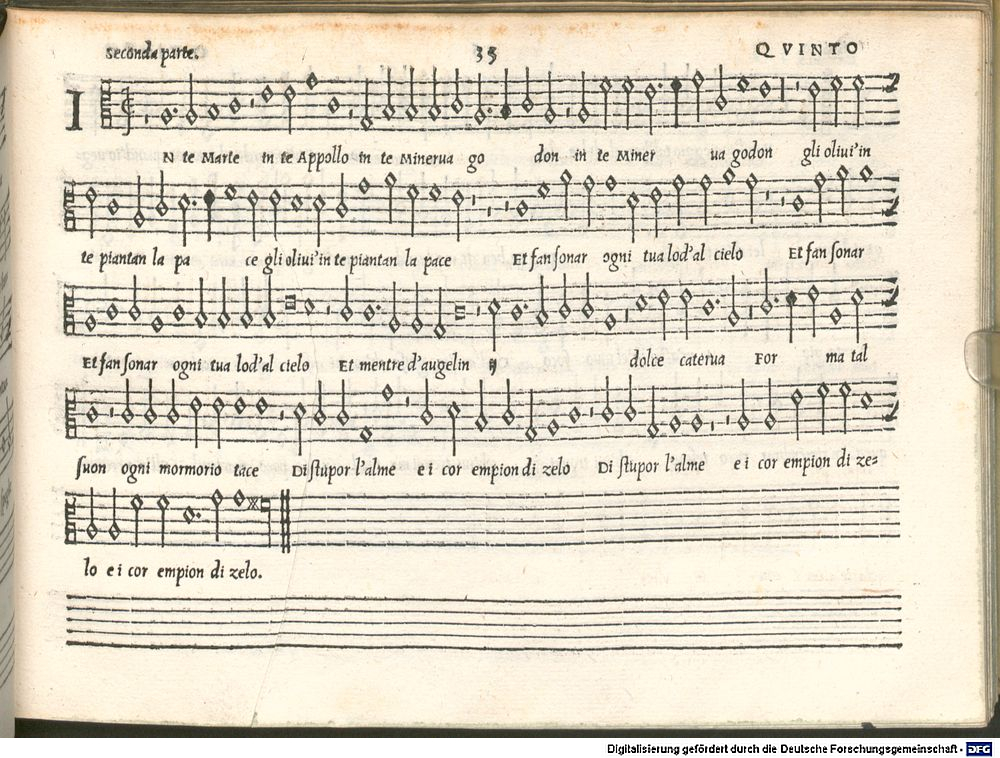 Seconda parte. 35 QVINTO
IN te Marte in te Appollo in te Minerua go don in te Miner ua godon gli oliui'in
te piantan la pa ce gli oliui'in te piantan la pace Et fan sonar ogni tua lod'al cielo Et fan sonar
Et fan sonar ogni tua lod'al cielo Et mentre d'augelin ij dolce caterua For ma tal
suon ogni mormorio tace Di stupor l'alme e i cor empion di zelo Di stupor l'alme e i cor empion di ze=
lo e i cor empion di zelo.
Digitalisierung gefördert durch die Deutsche Forschungsgemeinschaft - DFG